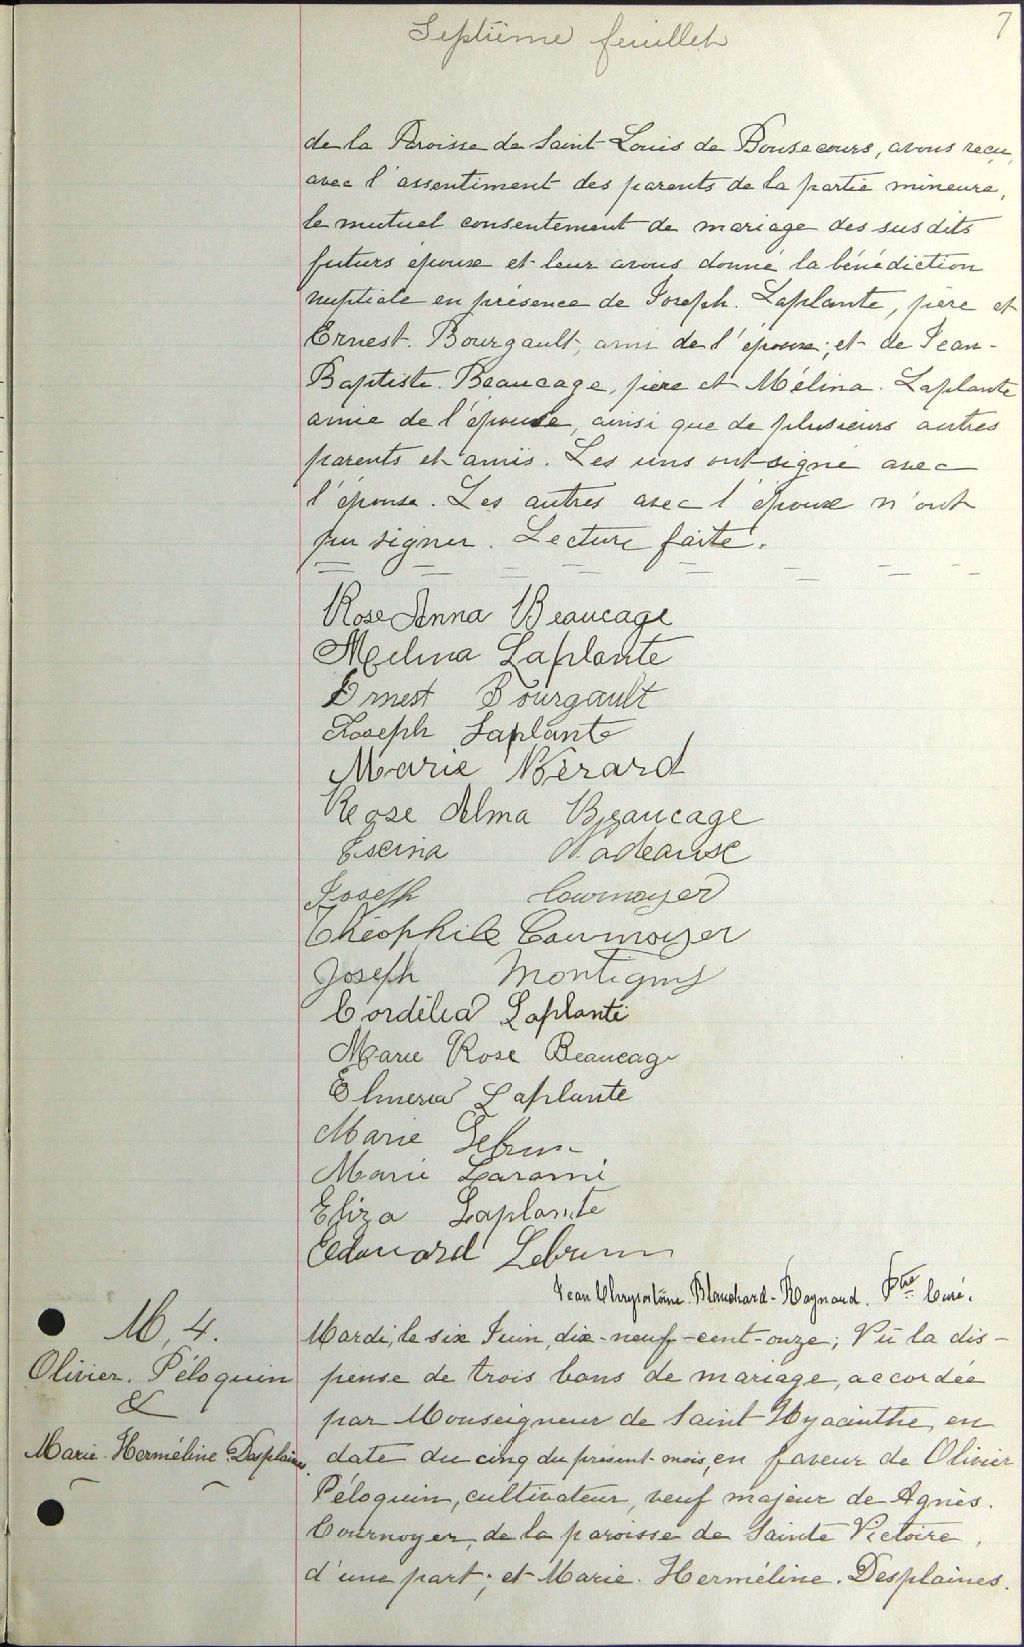 Septième feuillet
7
de la Paroisse de Saint-Louis de Bonsecours, avons reçu,
avec l'assentiment des parents de la partie mineure,
le mutuel consentement de mariage des susdits
futurs époux et leur avons donné la bénédiction
nuptiale en présence de Joseph. Laplante, père et
Ernest. Bourgault, ami de l'époux; et de Jean-
Baptiste. Beaucage, père et Mélina. Laplante
amie de l'épouse, ainsi que de plusieurs autres
parents et amis. Les uns ont signé avec
l'épouse. Les autres avec l'époux n'ont
pu signer. Lecture faite.
Rose Anna Beaucage
Melina Laplante
Ernest Bourgault
Joseph Laplante
Marie Bérard
Rose Alma Beaucage
Nadeause
Joseph Cournoyer
Théophile Cournoyer
Joseph Montigny
Cordélia Laplante
Marie Rose Beaucage
Elmeria Laplante
Marie Lebrun
Marie Larami
Eliza Laplante
Edouard Lebrun
Jean Chrysostôme. Blanchard-Raynaud. Ptre Curé.
M. 4.
Olivier. Péloquin
&
Marie. Herméline. Desplaines.
Mardi, le six Juin, dix-neuf-cent-onze; Vû la dis-
pense de trois bans de mariage, accordée
par Monseigneur de Saint Hyacinthe, en
date du cinq du présent mois, en faveur de Olivier
Péloquin, cultivateur, veuf majeur de Agnès.
Cournoyer, de la paroisse de Sainte Victoire,
d'une part; et Marie. Herméline. Desplaines.